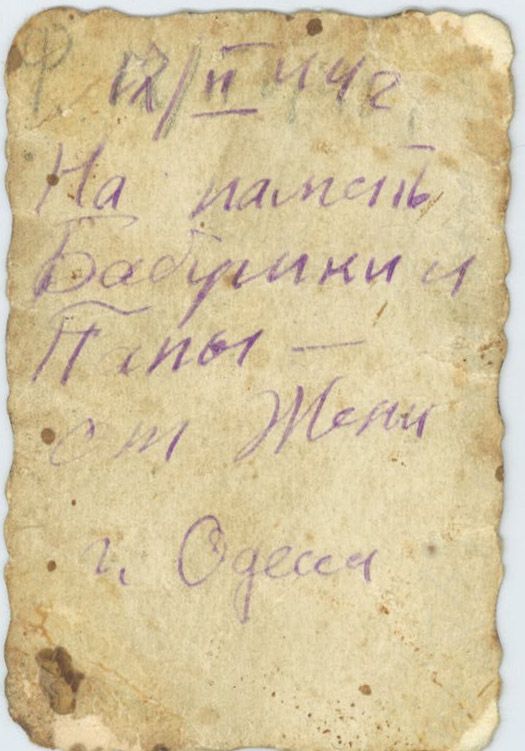 12/II 44 г
На память
Бабушки и
Папы —
от Жени
г. Одесса